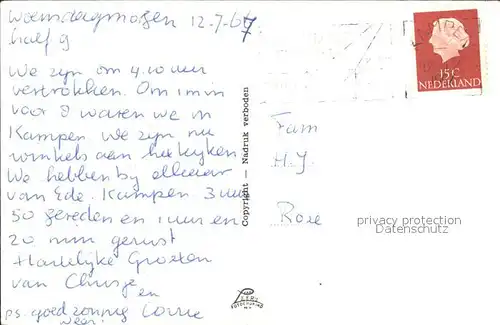 Woensdagmorgen 12.7.67
half 9
We zyn om 4.10 uur
vertrokken. Om 1 min
voor 8 waren we in
Kampen we zyn nu
winkels aan het kyken.
We hebben by elkaar
van Ede. Kampen 3 uur
50 gereden en 1 uur en
20 min gerust
Hartelyke Groeten
van Chrisje
en
ps. goed zonnig Corrie
weer.
Copyright — Nadruk verboden
KAMPEN
15C
NEDERLAND
Fam
H.J.
Rose
privacy protection
Datenschutz